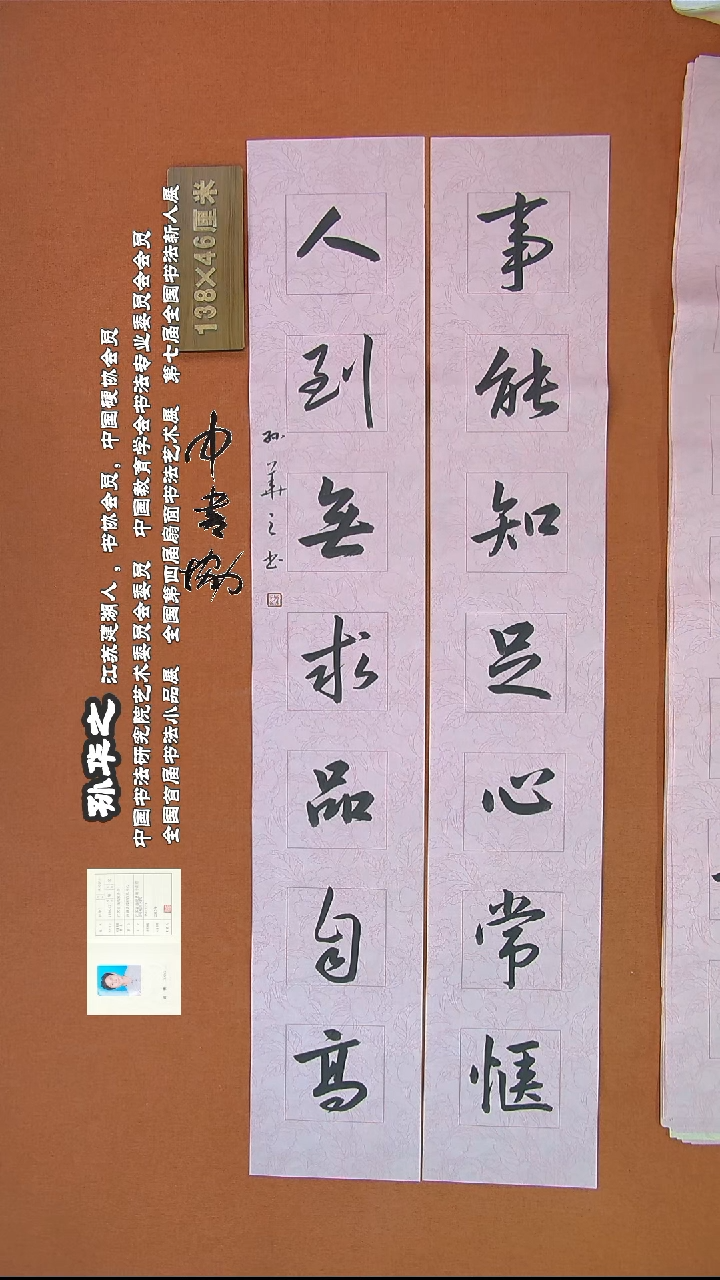 事能知足心常惬
人到無求品自高
孙華之书
138×46厘米
中书协
孙华之 江苏建湖人，书协会员，中国硬协会员
中国书法研究院艺术委员会委员 中国教育学会书法专业委员会会员
全国首届书法小品展 全国第四届扇面书法艺术展 第七届全国书法新人展